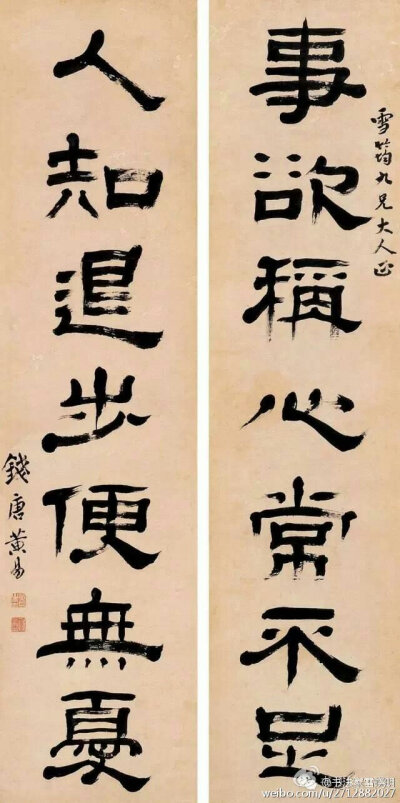 雪筠九兄大人正
事欲稱心常不足
人知退步便無憂
錢唐黃易
weibo.com/u/2712882027